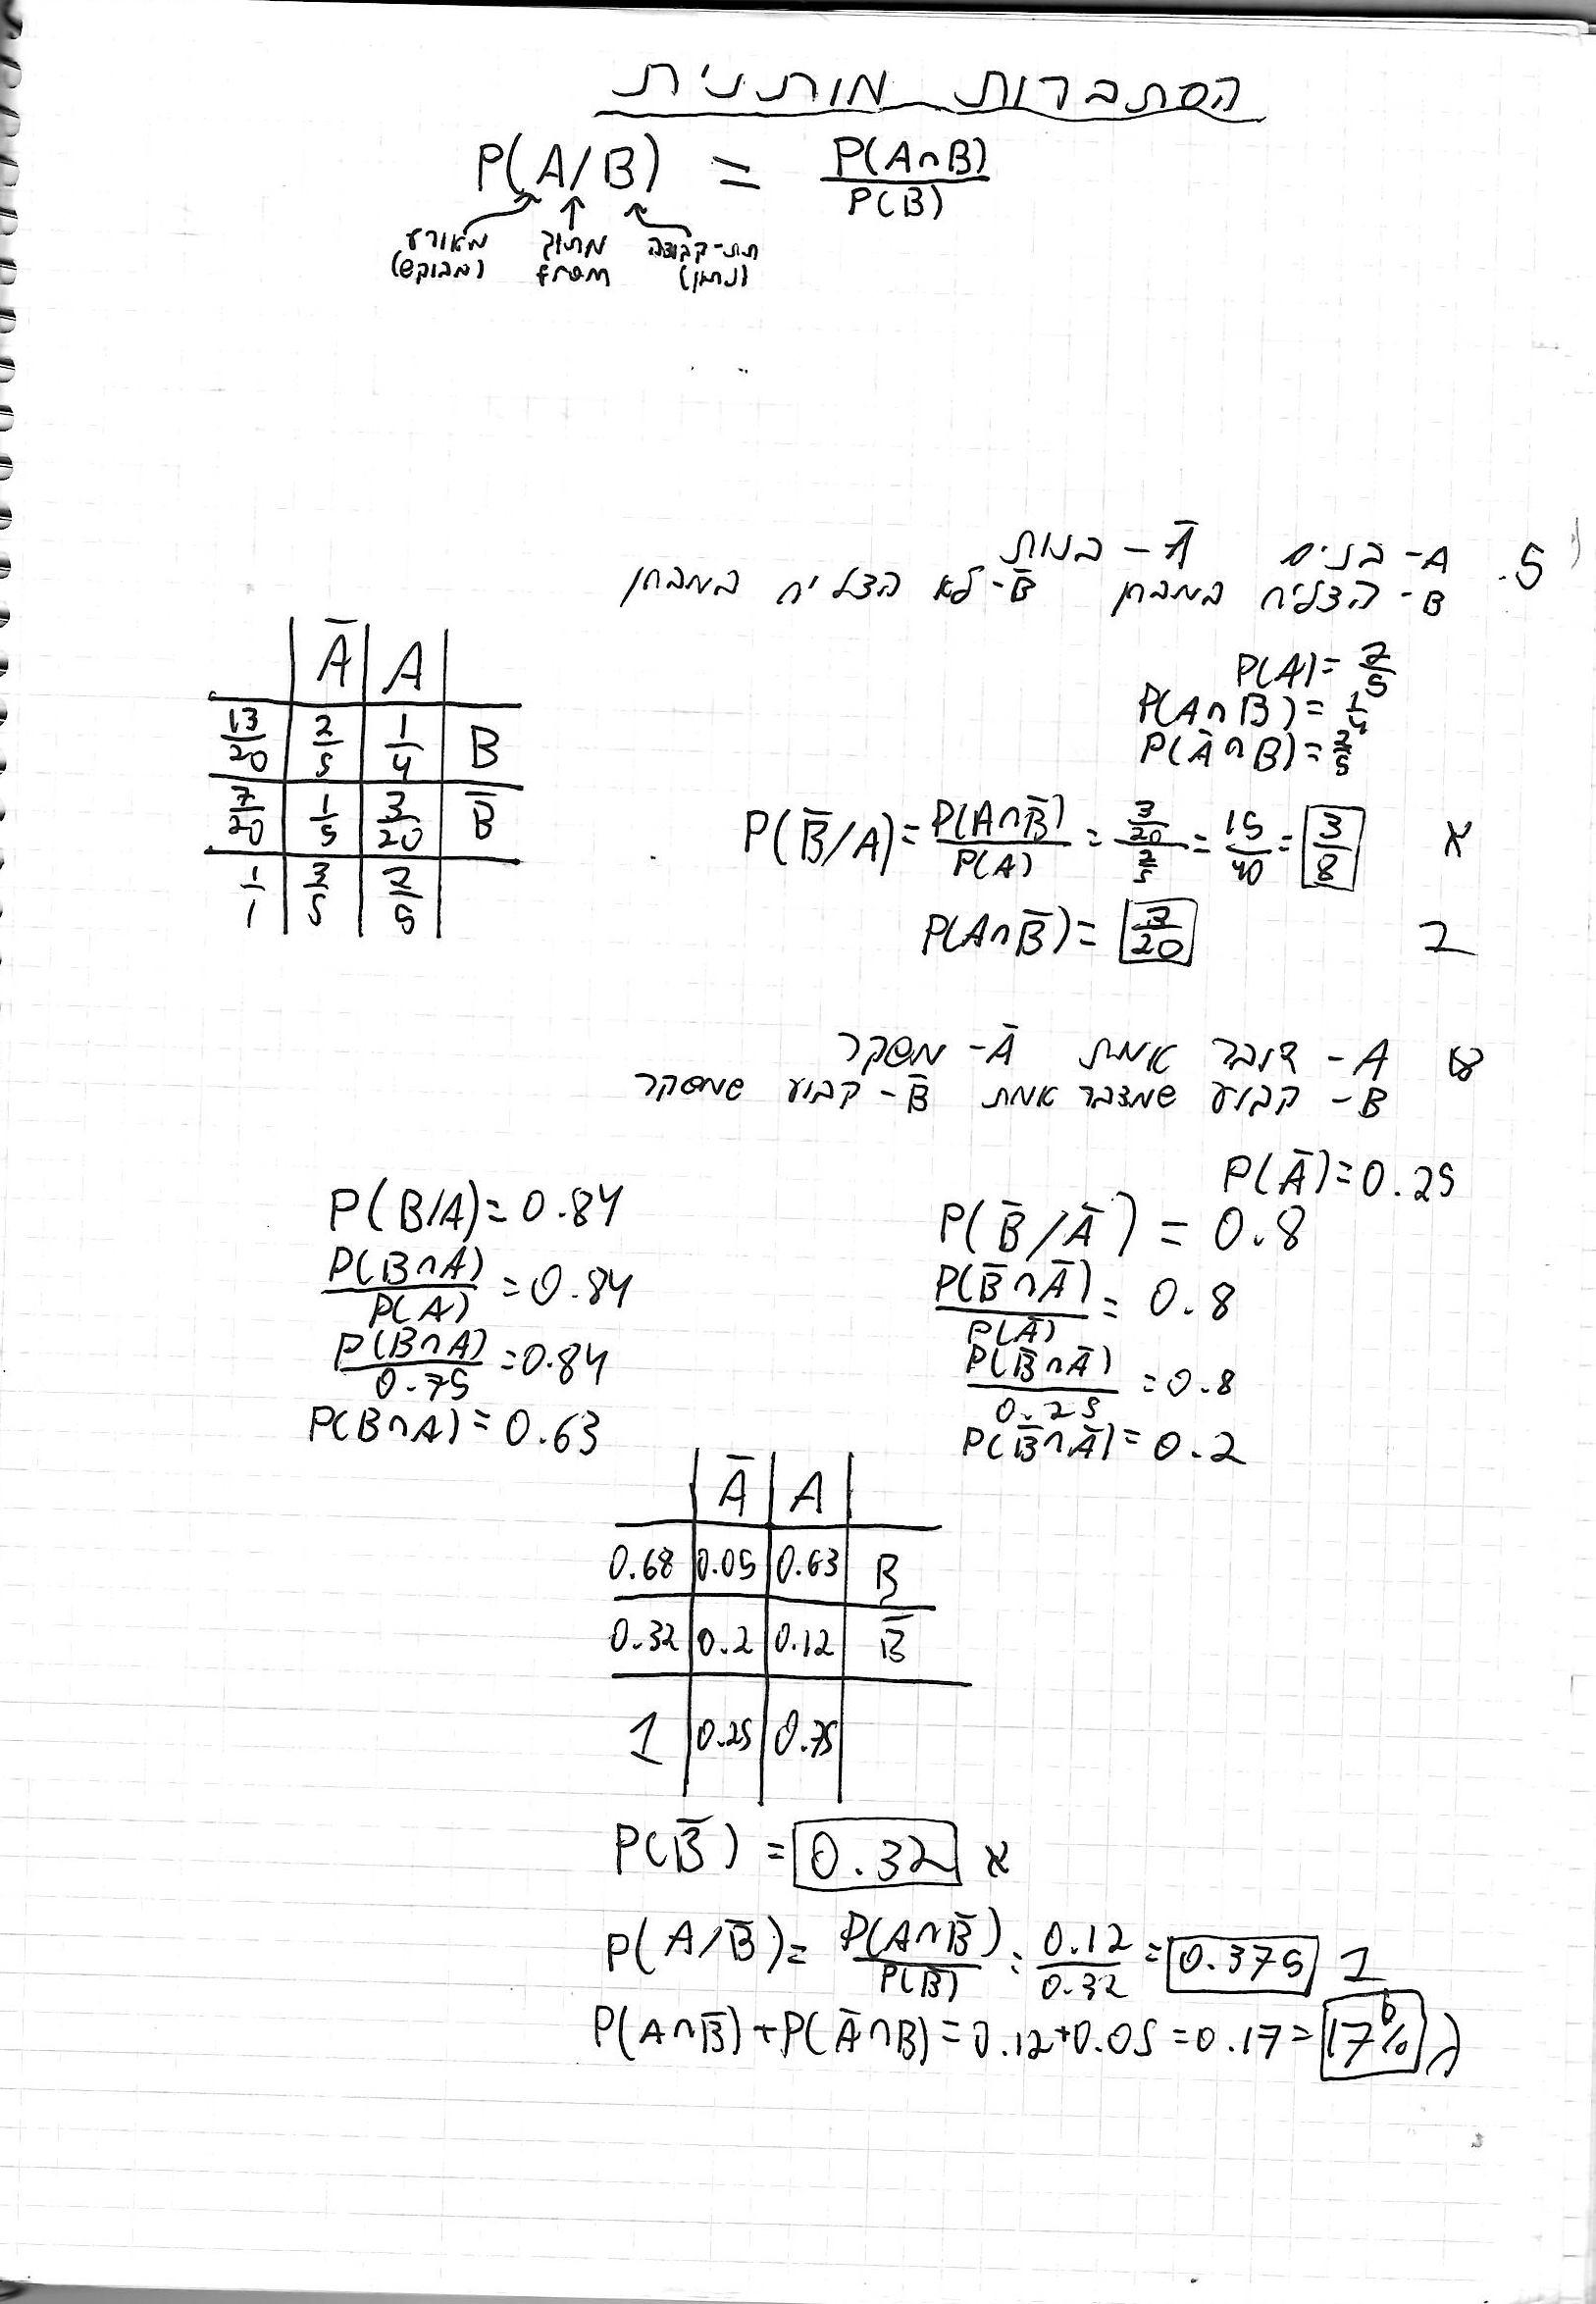 הסתברות מותנית
P(A/B) = P(A∩B)/P(B)
מאורע מתוך תת-קבוצה
(מבוקש) from (נתון)
5. A- בנים Ā - בנות
B- הצליח במבחן B̄- לא הצליח במבחן
P(A)= 2/5
P(A∩B)= 1/4
P(Ā∩B)= 2/5
Ā A
13/20 2/5 1/4 B
7/20 1/5 3/20 B̄
1/1 3/5 2/5
א P(B̄/A)= P(A∩B̄)/P(A) = (3/20)/(2/5) = 15/40 = 3/8
ב P(A∩B̄)= 3/20
A - דובר אמת Ā- משקר
B - קבוע שמדבר אמת B̄- קבוע שמשקר
P(Ā)=0.25
P(B̄/Ā) = 0.8
P(B̄∩Ā)/P(Ā) = 0.8
P(B̄∩Ā)/0.25 = 0.8
P(B̄∩Ā)= 0.2
P(B/A)= 0.84
P(B∩A)/P(A) = 0.84
P(B∩A)/0.75 = 0.84
P(B∩A)= 0.63
Ā A
0.68 0.05 0.63 B
0.32 0.2 0.12 B̄
1 0.25 0.75
P(B̄) = 0.32 א
P(A/B̄)= P(A∩B̄)/P(B̄) = 0.12/0.32 = 0.375 ב
P(A∩B̄)+P(Ā∩B)= 0.12+0.05 = 0.17 = 17% ג